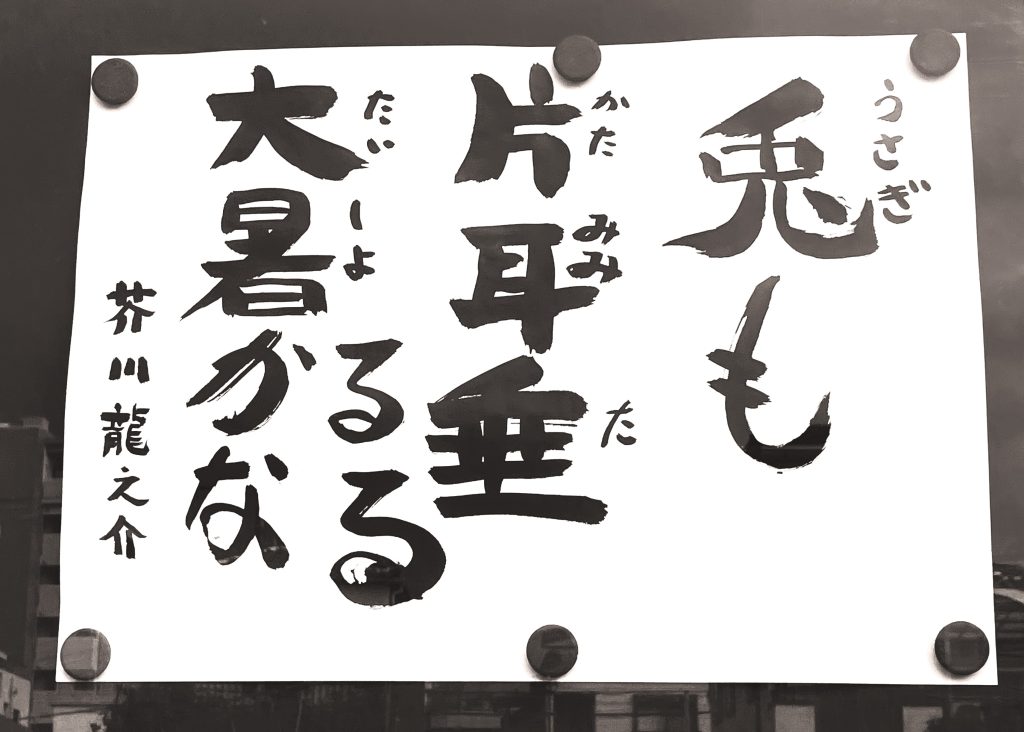 兎も
うさぎ
片耳垂
かたみみた
るる
大暑かな
たいしよ
芥川龍之介